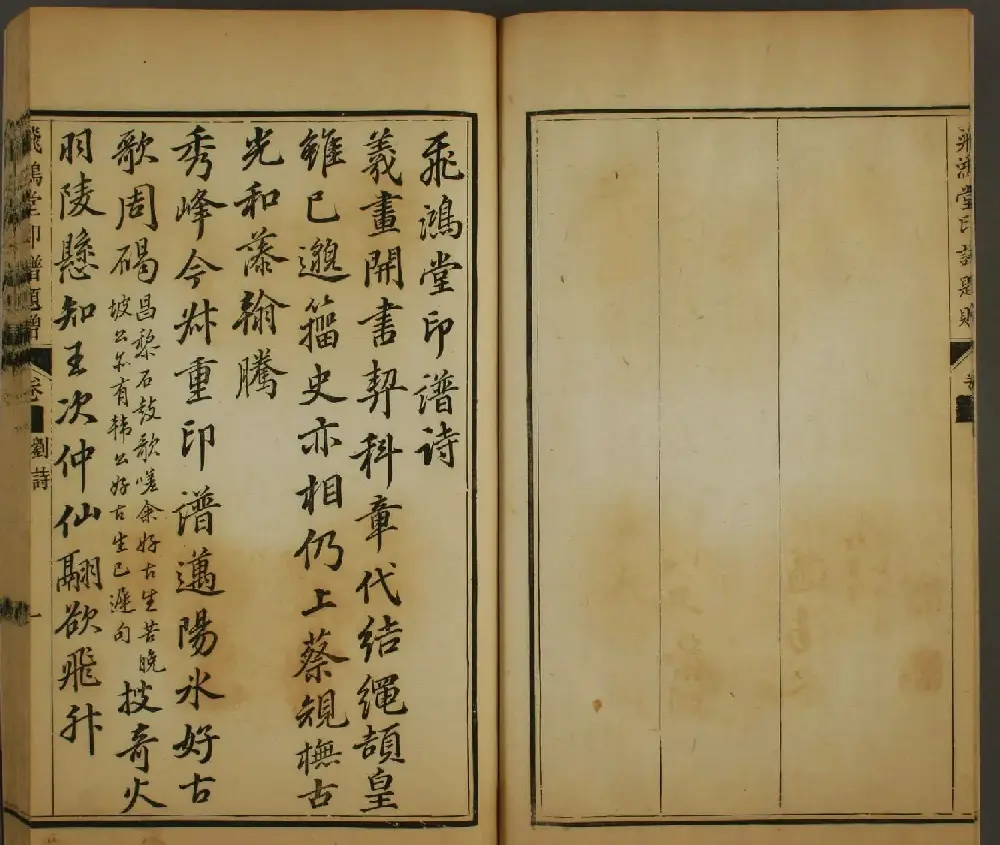 飛鴻堂印譜題贈
卷
飛鴻堂印譜詩
羲畫開書契科章代結繩頡皇
雖已邈籀史亦相仍上蔡規橅古
光和藻翰騰
秀峰今叔重印譜邁陽冰好古
歌周碣
昌黎石鼓歌嗟余好古生苦晚
坡公亦有韓公好古生已遲句
披奇火
羽陵懸知王次仲仙翮欲飛升
飛鴻堂印譜題贈
卷
劉詩
一